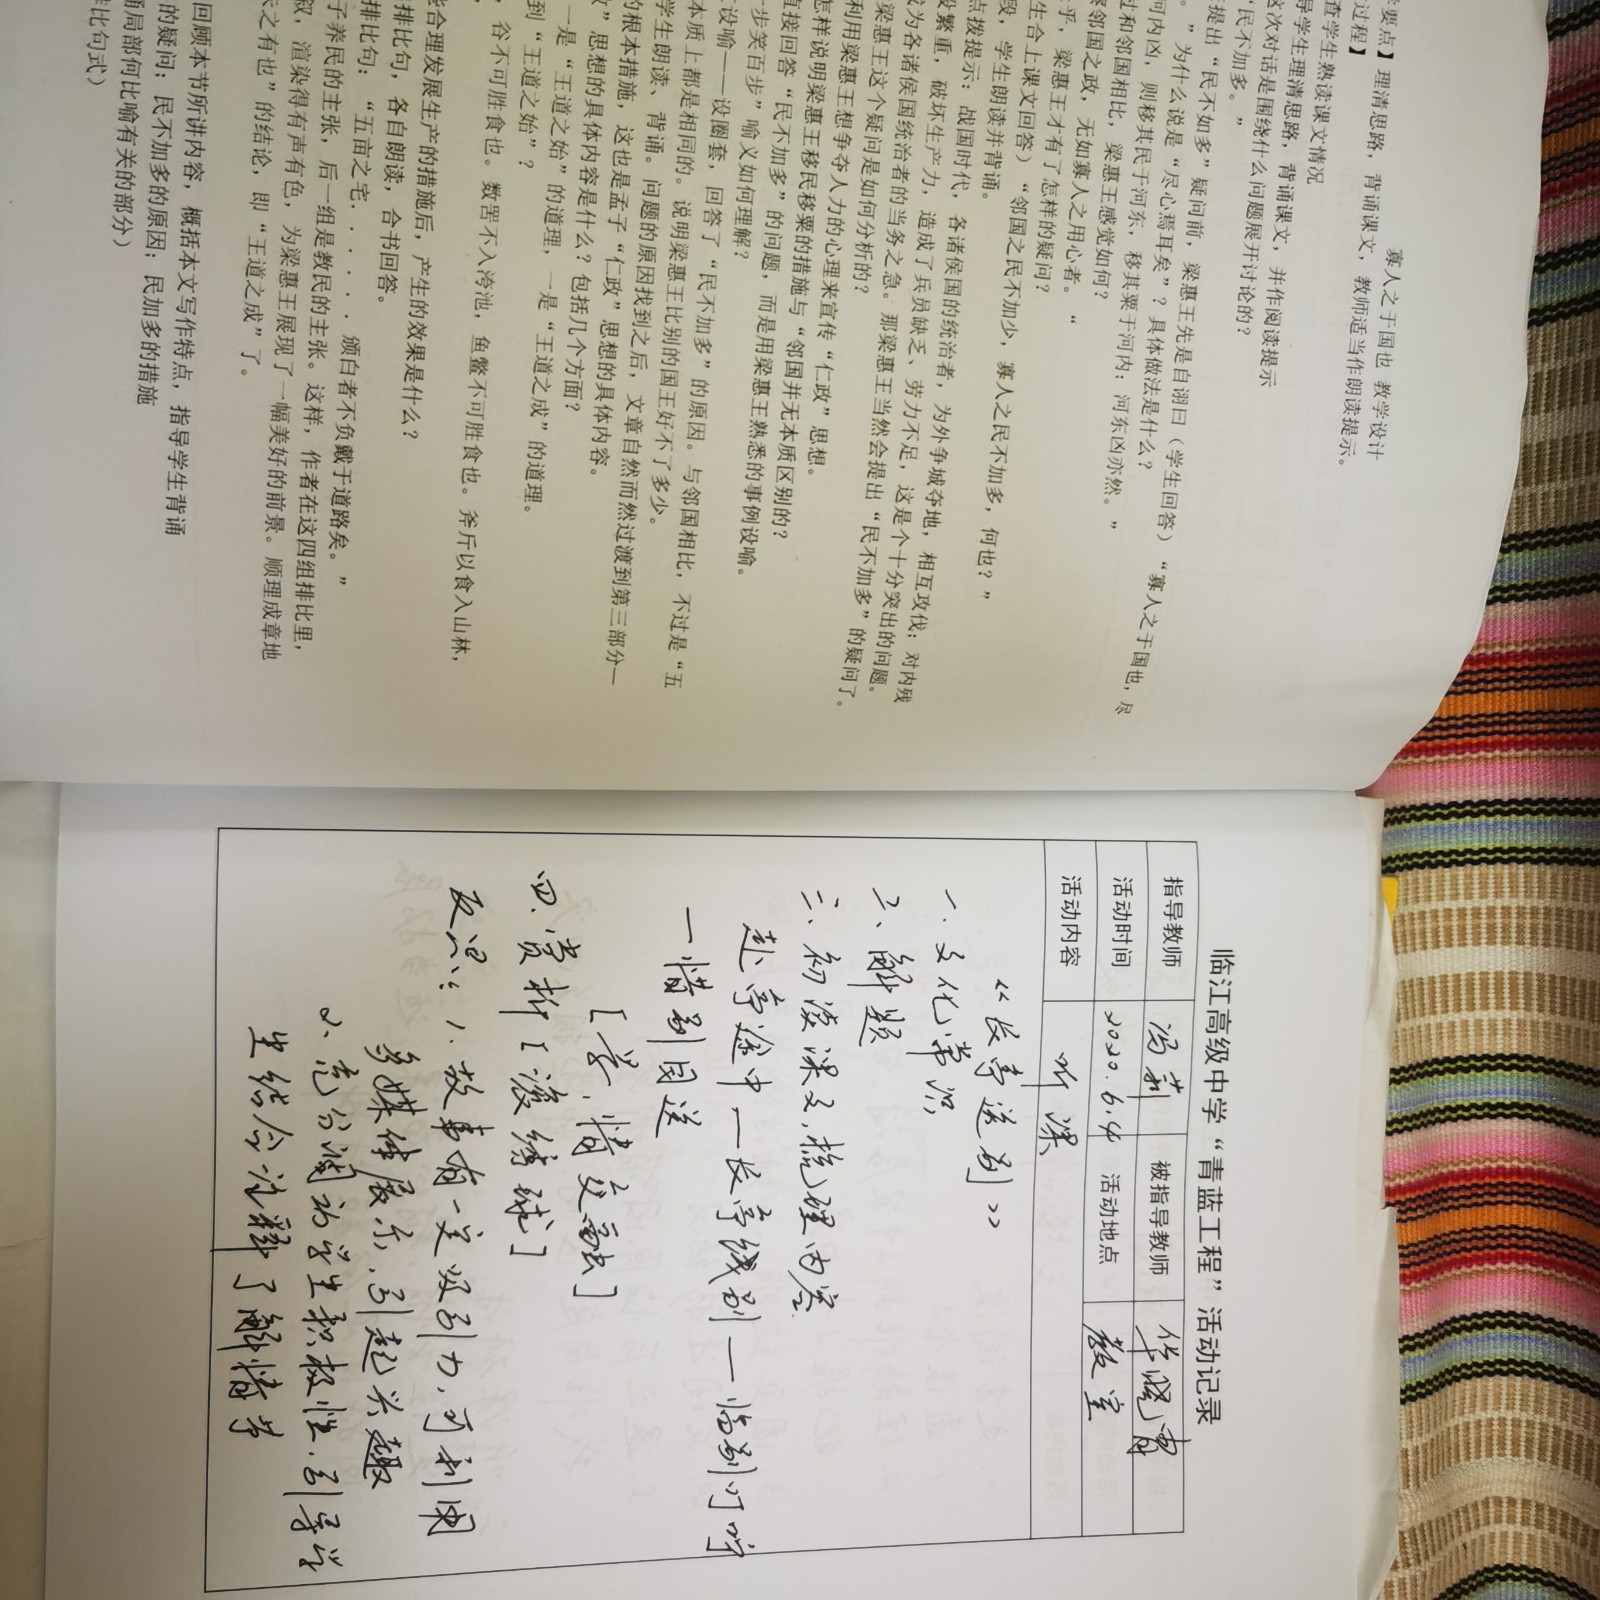 寡人之于国也 教学设计
学要点】 理清思路，背诵课文，教师适当作朗读提示。
过程】
查学生熟读课文情况
导学生理清思路，背诵课文，并作阅读提示
这次对话是围绕什么问题展开讨论的？
“民不加多。”
提出“民不如多”疑问前，梁惠王先是自诩曰（学生回答）“寡人之于国也，尽
。”为什么说是“尽心焉耳矣”？具体做法是什么？
河内凶，则移其民于河东，移其粟于河内；河东凶亦然。”
过和邻国相比，梁惠王感觉如何？
察邻国之政，无如寡人之用心者。“
乎，梁惠王才有了怎样的疑问？
生合上课文回答）“邻国之民不加少，寡人之民不加多，何也？”
段，学生朗读并背诵。
点拨提示：战国时代，各诸侯国的统治者，为外争城夺地，相互攻伐；对内残
役繁重，破坏生产力，造成了兵员缺乏、劳力不足，这是个十分突出的问题。
成为各诸侯国统治者的当务之急。那梁惠王当然会提出“民不加多”的疑问了。
梁惠王这个疑问是如何分析的？
利用梁惠王想争夺人力的心理来宣传“仁政”思想。
怎样说明梁惠王移民移粟的措施与“邻国并无本质区别的？
直接回答“民不加多”的问题，而是用梁惠王熟悉的事例设喻。
步笑百步”喻义如何理解？
设喻——设圈套，回答了“民不加多”的原因。与邻国相比，不过是“五
本质上都是相同的。说明梁惠王比别的国王好不了多少。
学生朗读、背诵。问题的原因找到之后，文章自然而然过渡到第三部分—
的根本措施，这也是孟子“仁政”思想的具体内容。
政”思想的具体内容是什么？包括几个方面？
一是“王道之始”的道理，一是“王道之成”的道理。
到“王道之始”？
，谷不可胜食也。数罟不入洿池，鱼鳖不可胜食也。斧斤以食入山林，
能合理发展生产的措施后，产生的效果是什么？
排比句，各自朗读，合书回答。
排比句：“五亩之宅．．．．．颁白者不负戴于道路矣。”
子养民的主张，后一组是教民的主张。这样，作者在这四组排比里，
叙，渲染得有声有色，为梁惠王展现了一幅美好的前景。顺理成章地
未之有也”的结论，即“王道之成”了。
回顾本节所讲内容，概括本文写作特点，指导学生背诵
的疑问；民不加多的原因；民加多的措施
诵局部何比喻有关的部分）
排比句式）
临江高级中学“青蓝工程”活动记录
指导教师 冯莉 被指导教师
活动时间 2020.6.4 活动地点 教室
活动内容 听课
《长亭送别》
一、文化常识
二、解题
三、初读课文，梳理内容
赴亭途中—长亭钱别—临别叮咛
—惜别目送
［景、情交融］
四、赏析［滚绣球］
反思：1、故事有一定吸引力，可利用
多媒体展示，引起兴趣
2、充分调动学生积极性，引导学
生结合注释了解情节